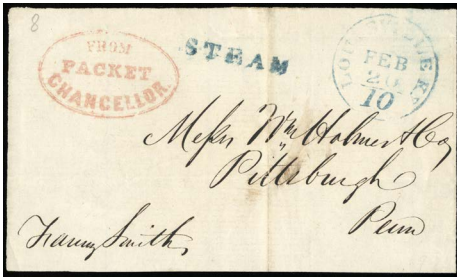 8
FROM
PACKET
CHANCELLOR.
STEAM
LOUISVILLE KY.
FEB
20
10
Messrs Wm Holmes & Co
Pittsburgh
Penn
Fanny Smith,